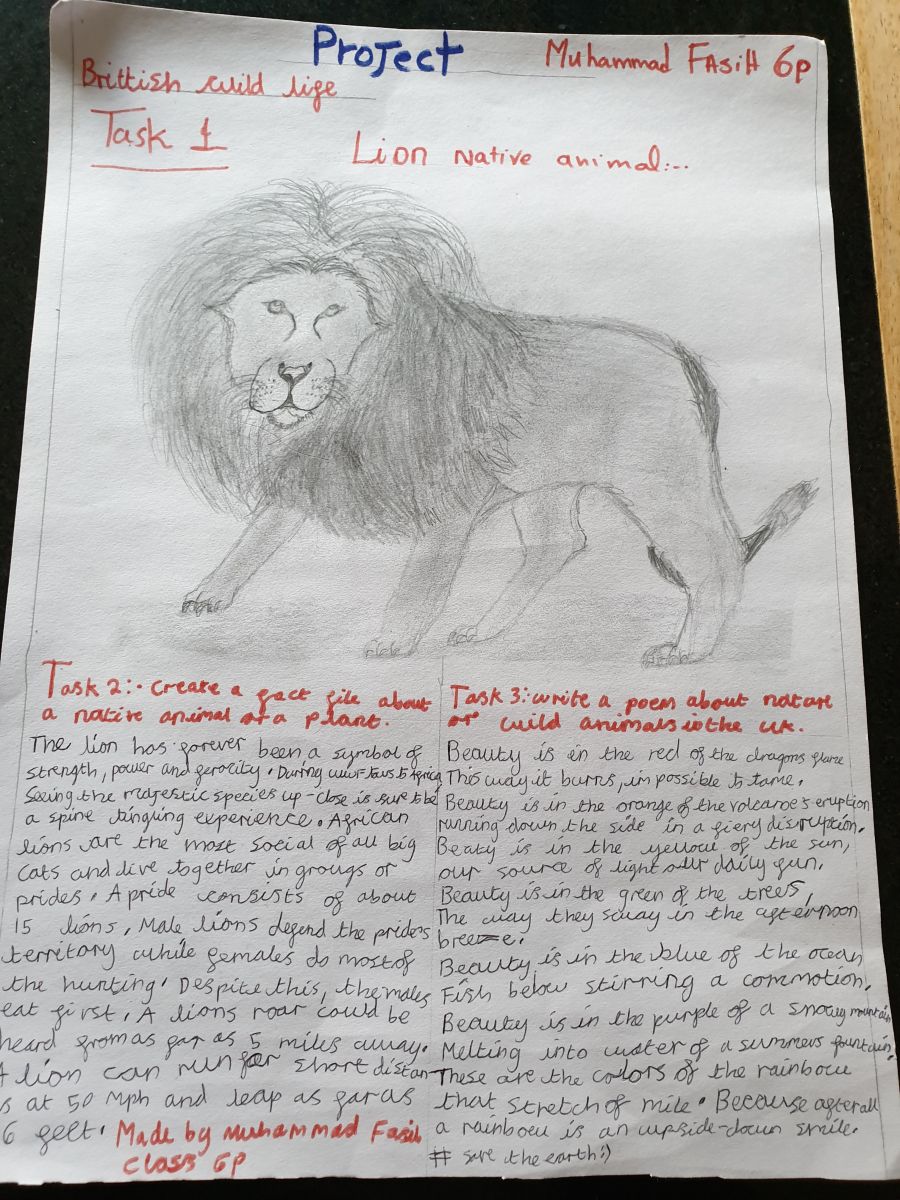 Project
Muhammad FasiH 6p
Brittish wild life
Task 1
Lion Native animal:--
Task 2:- Create a fact file about
a native animal or a plant.
The lion has forever been a symbol of
strength, power and ferocity. During
Seeing the majestic species up-close is sure to be
a spine tingling experience. African
lions are the most social of all big
Cats and live together in groups or
prides. A pride consists of about
15 lions, Male lions defend the prides
territory while females do most of
the hunting. Despite this, the males
eat first, A lions roar could be
heard from as far as 5 miles away.
A lion can run for short distan-
s at 50 mph and leap as far as
6 feet. Made by Muhammad Fasih
Class 6p
Task 3: write a poem about nature
or wild animals in the uk.
Beauty is in the red of the dragons flare
This way it burns, impossible to tame.
Beauty is in the orange of the volcanoe's eruption
running down the side in a fiery disruption.
Beaty is in the yellow of the sun,
our source of light our daily fun.
Beauty is in the green of the trees,
The way they sway in the afternoon
breeze.
Beauty is in the blue of the ocean
Fish below stirring a commotion,
Beauty is in the purple of a snowy mountain
Melting into water of a summers fountain.
These are the colors of the rainbow
that stretch of mile. Because after all
a rainbow is an upside-down smile.
# save the earth:)